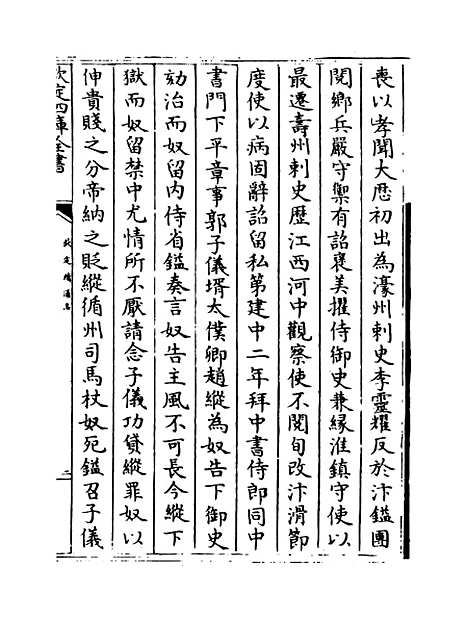 喪以孝聞大厯初出為濠州刺史李靈耀反於汴鎰團
閲鄉兵嚴守禦有詔褒美擢侍御史兼縁淮鎮守使以
最遷壽州刺史歴江西河中觀察使不閲旬改汴滑節
度使以病固辭詔留私第建中二年拜中書侍郎同中
書門下平章事郭子儀壻太僕卿趙縱為奴告下御史
劾治而奴留内侍省鎰奏言奴告主風不可長今縱下
獄而奴留禁中尤情所不厭請念子儀功貸縱罪奴以
伸貴賤之分帝納之貶縱循州司馬杖奴死鎰召子儀
欽定四庫全書
欽定續通志
二